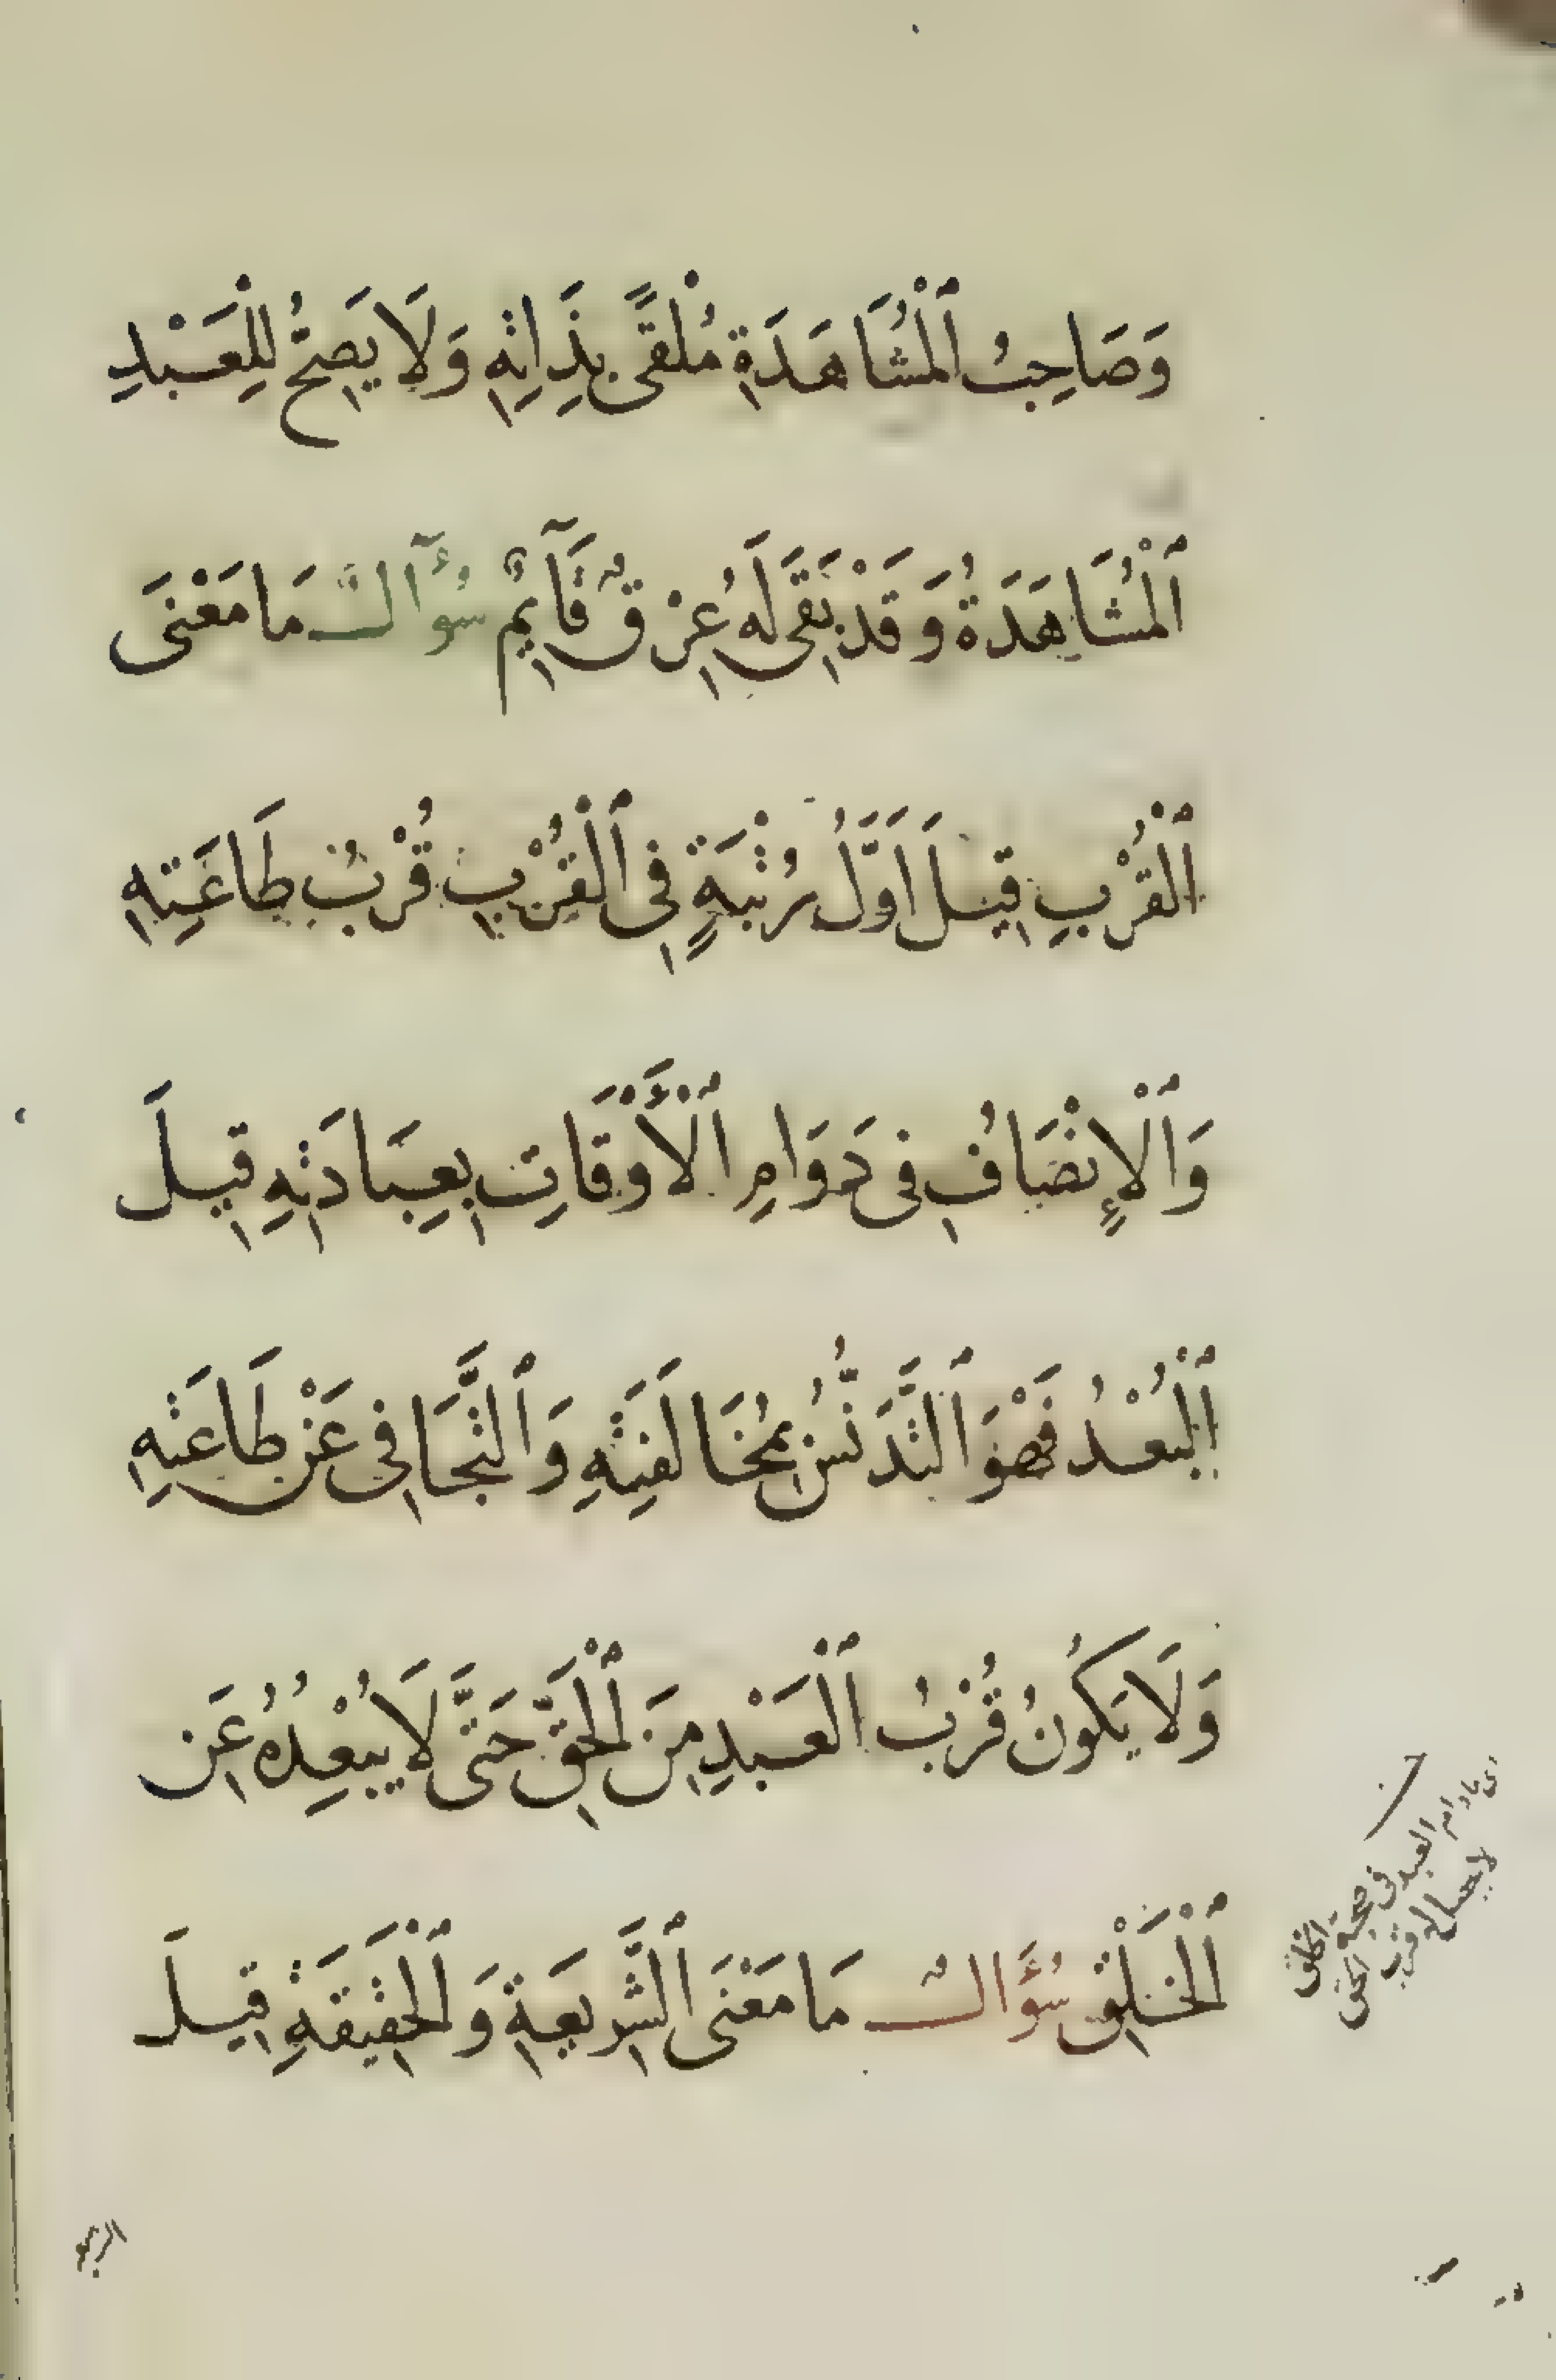 وَصَاحِبُ ٱلْمُشَاهَدَةِ مُلْقًى بِذَاتِهِ وَلَا يَصِحُّ لِلْعَبْدِ
ٱلْمُشَاهَدَةُ وَقَدْ بَقَى لَهُ عِرْقٌ قَآئِمٌ سُؤَآلٌ مَا مَعْنَى
ٱلْقُرْبِ قِيلَ اَوَّلُ رُتْبَةٍ فِى ٱلْقُرْبِ قُرْبُ طَاعَتِهِ
وَٱلْإِتْصَافُ فِى دَوَامِ ٱلْأَوْقَاتِ بِعِبَادَتِهِ قِيلَ
ٱلْبُعْدُ فَهْوَ ٱلتَّدَنُّسُ بِمُخَالَفَتِهِ وَٱلتَّجَافِى عَنْ طَاعَتِهِ
وَلَا يَكُونُ قُرْبُ ٱلْعَبْدِ مِنَ ٱلْحَقِّ حَتَّى لَا يُبْعِدُهُ عَنِ
ٱلْخَلْقِ سُؤَالٌ مَا مَعْنَى ٱلشَّرِيعَةِ وَٱلْحَقِيقَةِ قِيلَ
مادام العبد فى صحبة الخلق
لا يصل الى قرب الحق